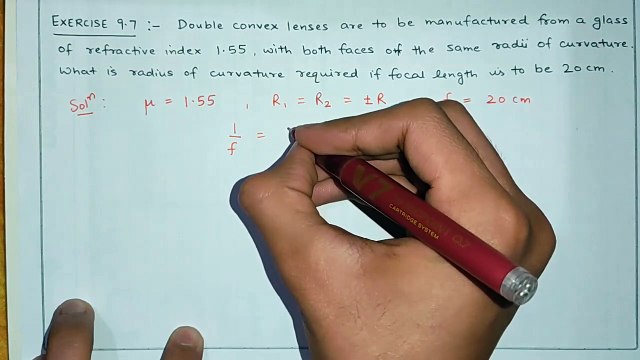 EXERCISE 9.7 :- Double convex lenses are to be manufactured from a glass
of refractive index 1.55, with both faces of the same radii of curvature.
What is radius of curvature required if focal length is to be 20 cm.
Solⁿ : μ = 1.55 , R₁ = R₂ = ±R = 20 cm
1/f =
V7
CARTRIDGE SYSTEM